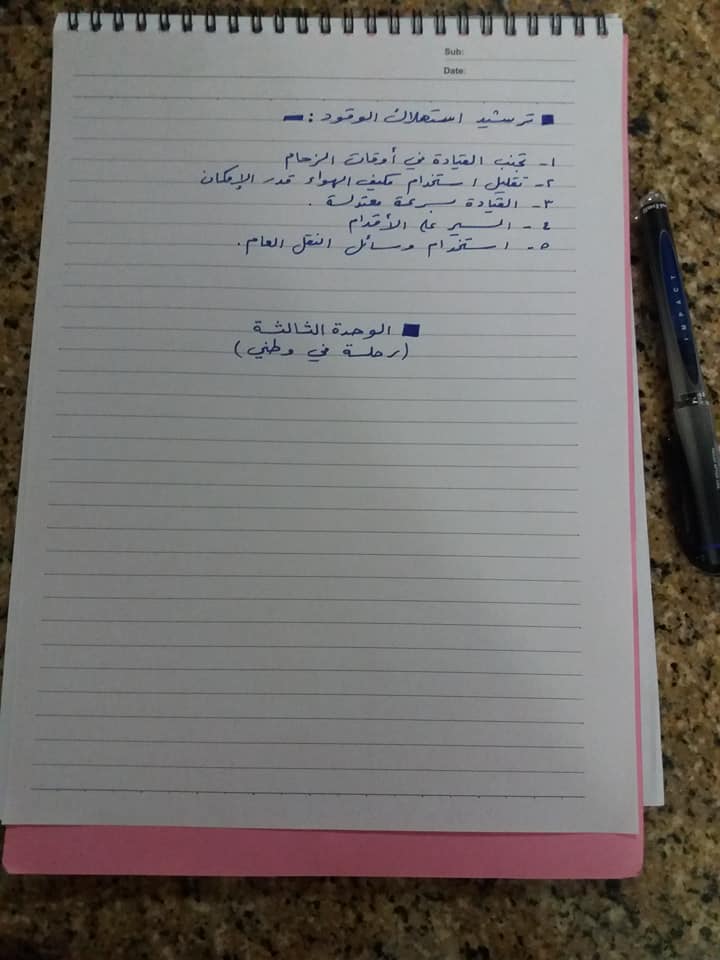 Sub:
Date:
■ ترشيد استهلاك الوقود :-
١- تجنب القيادة في أوقات الزحام
٢- تقليل استخدام مكيف الهواء قدر الإمكان
٣- القيادة بسرعة معتدلة .
٤- السير على الأقدام
٥- استخدام وسائل النقل العام.
■ الوحدة الثالثة
(رحلة في وطني)
IMPACT